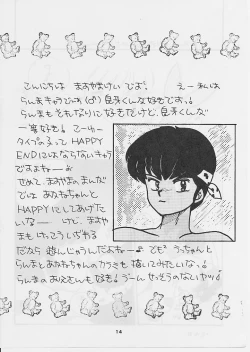 こんにちは ますやまけい です。 えー私は
らんまキャラでは(P)良牙くんな好きでおっ!
らんまもそれなりに好きだけど、良牙くんが
一等好き! てーゆー
タイプらって HAPPY
ENDにはならないキャラ
ですよねー♪
せめて ますやまのまんが
では あかねちゃんと
HAPPYにしてあげた
いなー けど、ますや
まも けっこう いじわる
だから 遊んじゃうんだよねー♪ でも うっちゃんと
らんまとあかねちゃんのカラミも 描いてみたいなっ!
らんまのお父さんも好き! うーん せっそうのないヤツ!
14